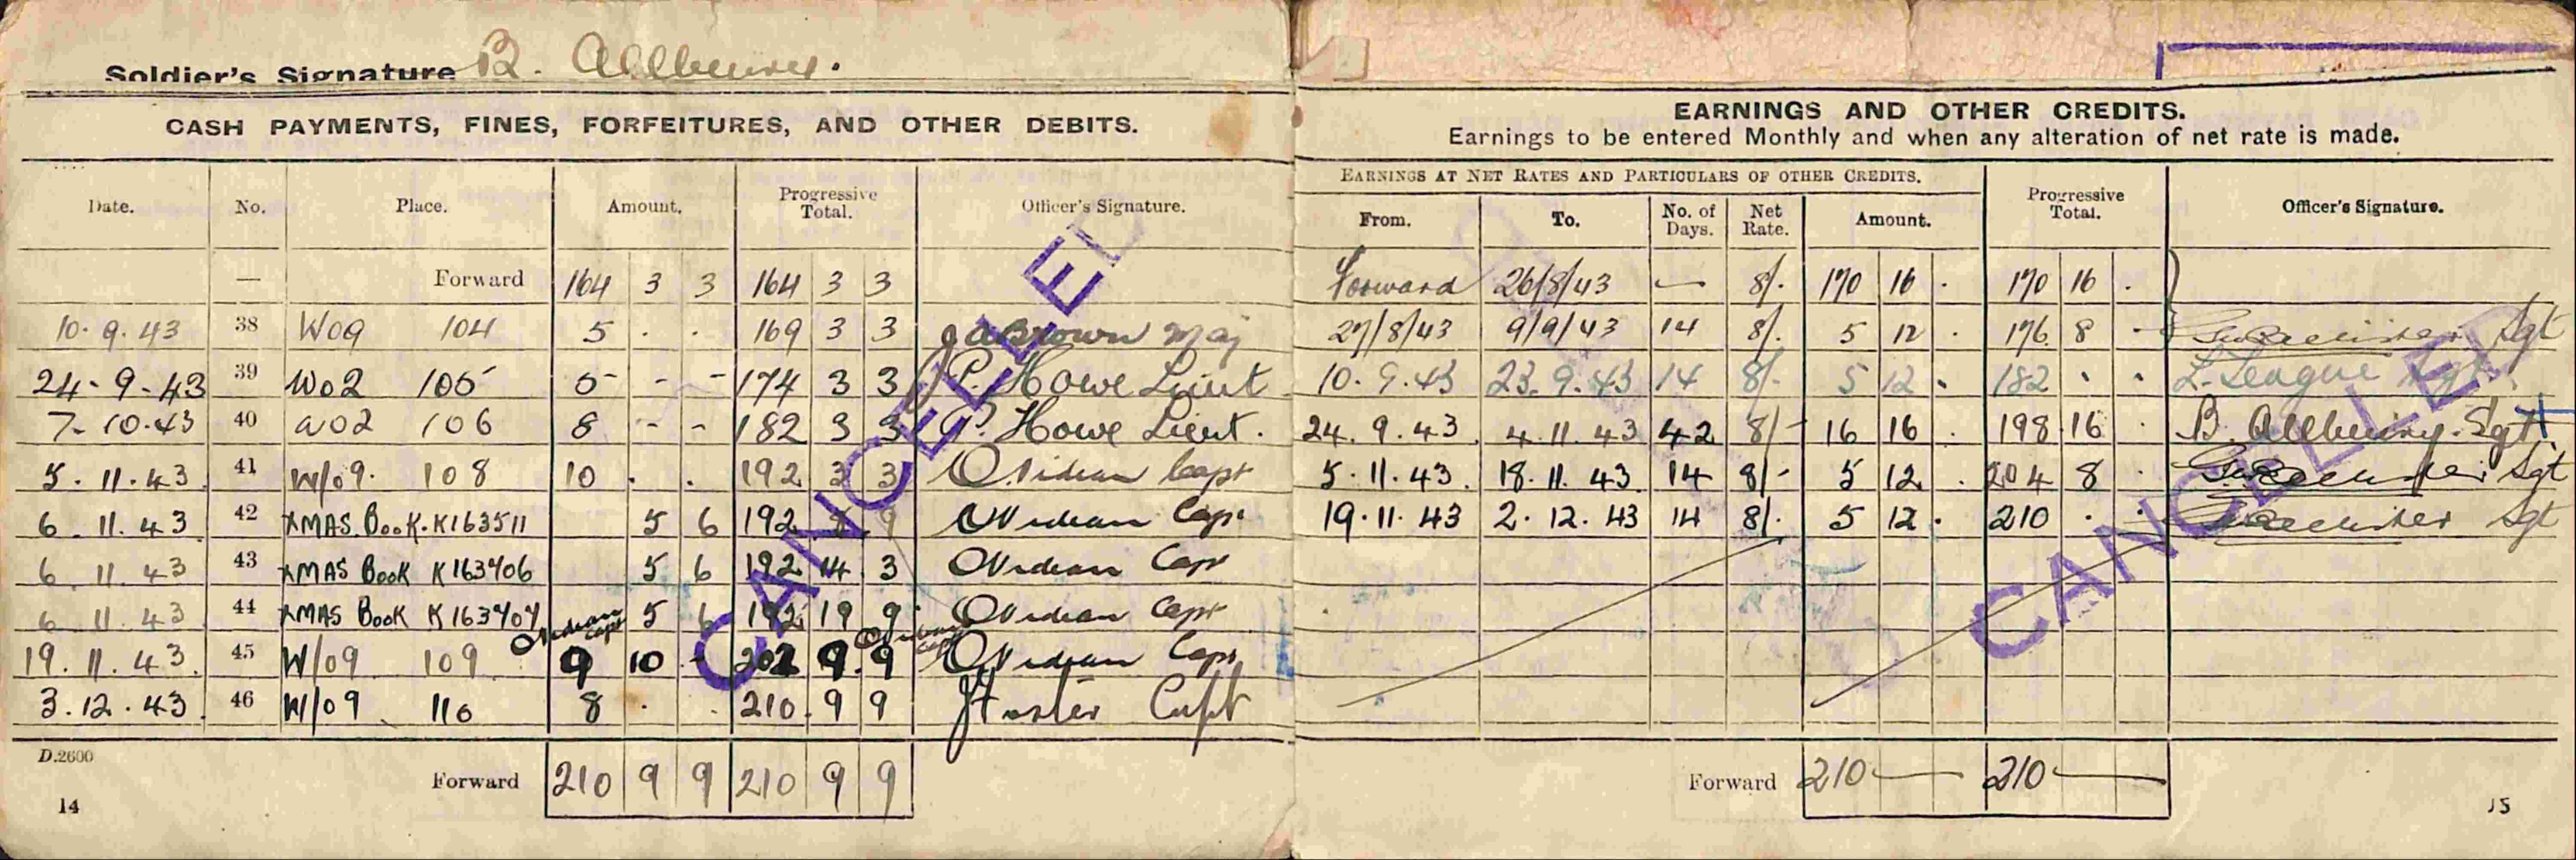 Soldier's Signature B. Allbeury.
CASH PAYMENTS, FINES, FORFEITURES, AND OTHER DEBITS.
Date. No. Place. Amount. Progressive Total. Officer's Signature.
— Forward 164 3 3 164 3 3
10. 9. 43 38 W09 104 5 . . 169 3 3 J A Brown Maj
24-9-43 39 W02 105 5 - - 174 3 3 P. Howe Lieut
7-10.43 40 W02 106 8 - - 182 3 3 P. Howe Lieut.
5. 11. 43 41 W/09. 108 10 . . 192 3 3 Capt
6. 11. 43 42 XMAS. BOOK. K163511 5 6 192 9 Capt
6. 11. 43 43 XMAS BOOK K163706 5 6 192 14 3 Capt
6 11. 43 44 XMAS BOOK K163707 5 6 192 19 9 Capt
19. 11. 43. 45 W/09 109 9 10 - 202 9. 9 Capt
3. 12. 43 46 W/09 110 8 . . 210. 9 9 Foster Capt
Forward 210 9 9 210 9 9
D.2600
14
EARNINGS AND OTHER CREDITS.
Earnings to be entered Monthly and when any alteration of net rate is made.
EARNINGS AT NET RATES AND PARTICULARS OF OTHER CREDITS.
From. To. No. of Days. Net Rate. Amount. Progressive Total. Officer's Signature.
Forward 26/8/43 — 8/. 170 16 . 170 16 .
27/8/43 9/9/43 14 8/. 5 12 . 176. 8 - Sgt
10. 9. 43 23. 9. 43 14 8/- 5 12 . 182 . . L. League Sgt.
24. 9. 43 4. 11. 43 42 8/- 16 16 . 198 16 . B. Allbeury. Sgt
5. 11. 43. 18. 11. 43. 14 8/- 5 12 . 204 8 . Sgt
19. 11. 43 2. 12. 43 14 8/. 5 12. 210 . . Sgt
Forward 210 — 210 —
15
CANCELLED
CANCELLED